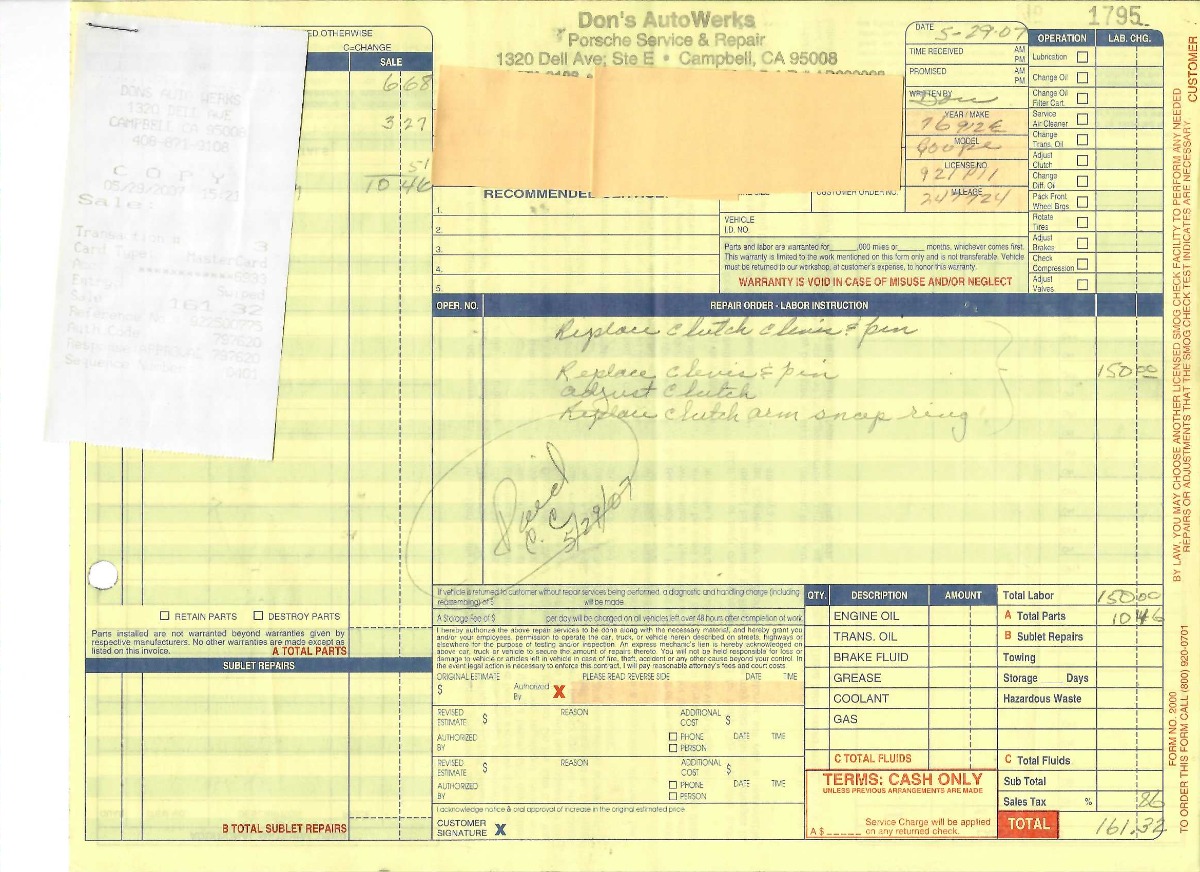 1795
Don's AutoWerks
Porsche Service & Repair
1320 Dell Ave; Ste E • Campbell, CA 95008
ED OTHERWISE
C=CHANGE
SALE
6 68
3 27
51
10 46
DONS AUTO WERKS
1320 DELL AVE
CAMPBELL CA 95008
408-871-9108
C O P Y
05/29/2007 15:21
Sale
Transaction # 3
Card Type MasterCard
Swiped
Sale 161.32
Auth. Code 797620
Response APPROVAL 797620
Sequence Number 0401
DATE 5-29-07
TIME RECEIVED AM PM
PROMISED AM PM
WRITTEN BY Don
YEAR / MAKE
76 912E
MODEL
Coupe
LICENSE NO.
921P11
MILEAGE
247924
OPERATION LAB. CHG.
Lubrication
Change Oil
Change Oil Filter Cart.
Service Air Cleaner
Change Trans. Oil
Adjust Clutch
Change Diff. Oil
Pack Front Wheel Brgs
Rotate Tires
Adjust Brakes
Check Compression
Adjust Valves
CUSTOMER ORDER NO.
1.
2.
3.
4.
5.
VEHICLE
I.D. NO.
Parts and labor are warranted for ______,000 miles or ______ months, whichever comes first.
This warranty is limited to the work mentioned on this form only and is not transferable. Vehicle
must be returned to our workshop, at customer's expense, to honor this warranty.
WARRANTY IS VOID IN CASE OF MISUSE AND/OR NEGLECT
OPER. NO. REPAIR ORDER - LABOR INSTRUCTION
Replace clutch clevis & pin
Replace clevis & pin 150 00
adjust clutch
Replace clutch arm snap ring
Paid
C.C.
5/29/07
RETAIN PARTS DESTROY PARTS
Parts installed are not warranted beyond warranties given by
respective manufacturers. No other warranties are made except as
listed on this invoice. A TOTAL PARTS
SUBLET REPAIRS
B TOTAL SUBLET REPAIRS
If vehicle is returned to customer without repair services being performed, a diagnostic and handling charge (including
reassembling) of $ will be made.
A Storage Fee of $ per day will be charged on all vehicles left over 48 hours after completion of work.
I hereby authorize the above repair services to be done along with the necessary material, and hereby grant you
and/or your employees, permission to operate the car, truck, or vehicle herein described on streets, highways or
elsewhere for the purpose of testing and/or inspection. An express mechanic's lien is hereby acknowledged on
above car, truck or vehicle to secure the amount of repairs thereto. You will not be held responsible for loss or
damage to vehicle or articles left in vehicle in case of fire, theft, accident or any other cause beyond your control. In
the event legal action is necessary to enforce this contract, I will pay reasonable attorney's fees and court costs
ORIGINAL ESTIMATE PLEASE READ REVERSE SIDE DATE TIME
$ Authorized By X
REVISED ESTIMATE $ REASON ADDITIONAL COST $
AUTHORIZED BY PHONE PERSON DATE TIME
REVISED ESTIMATE $ REASON ADDITIONAL COST $
AUTHORIZED BY PHONE PERSON DATE TIME
I acknowledge notice & oral approval of increase in the original estimated price.
CUSTOMER SIGNATURE X
QTY. DESCRIPTION AMOUNT
ENGINE OIL
TRANS. OIL
BRAKE FLUID
GREASE
COOLANT
GAS
C TOTAL FLUIDS
TERMS: CASH ONLY
UNLESS PREVIOUS ARRANGEMENTS ARE MADE
A $ _____ Service Charge will be applied
on any returned check.
Total Labor 150 00
A Total Parts 10 46
B Sublet Repairs
Towing
Storage ___ Days
Hazardous Waste
C Total Fluids
Sub Total
Sales Tax % 86
TOTAL 161.32
BY LAW, YOU MAY CHOOSE ANOTHER LICENSED SMOG CHECK FACILITY TO PERFORM ANY NEEDED
REPAIRS OR ADJUSTMENTS THAT THE SMOG CHECK TEST INDICATES ARE NECESSARY.
CUSTOMER
FORM NO. 2000
TO ORDER THIS FORM CALL (800) 920-0701